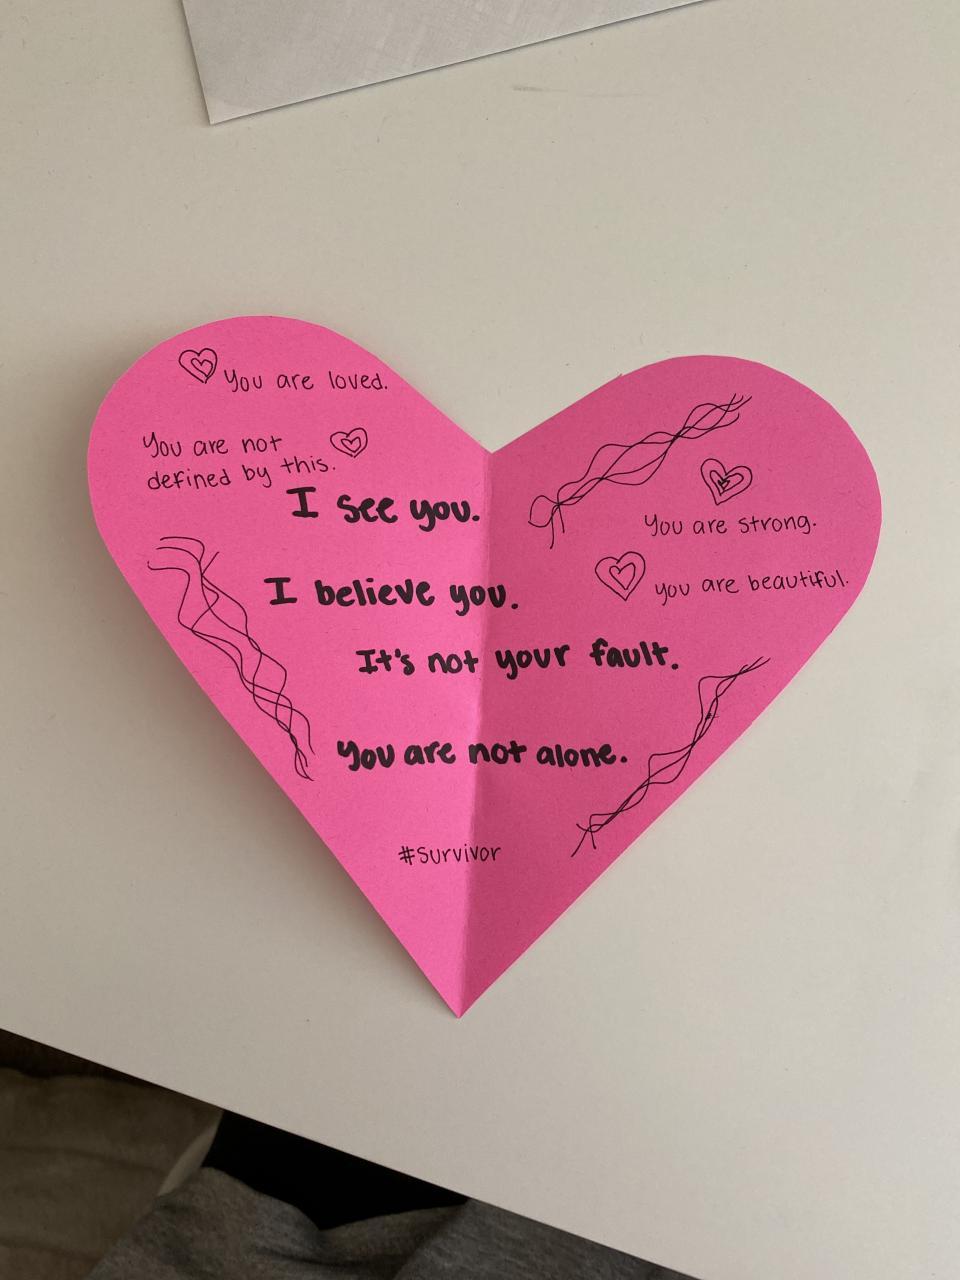 You are loved.
You are not
defined by this.
I see you.
You are strong.
you are beautiful.
I believe you.
It's not your fault.
You are not alone.
#Survivor